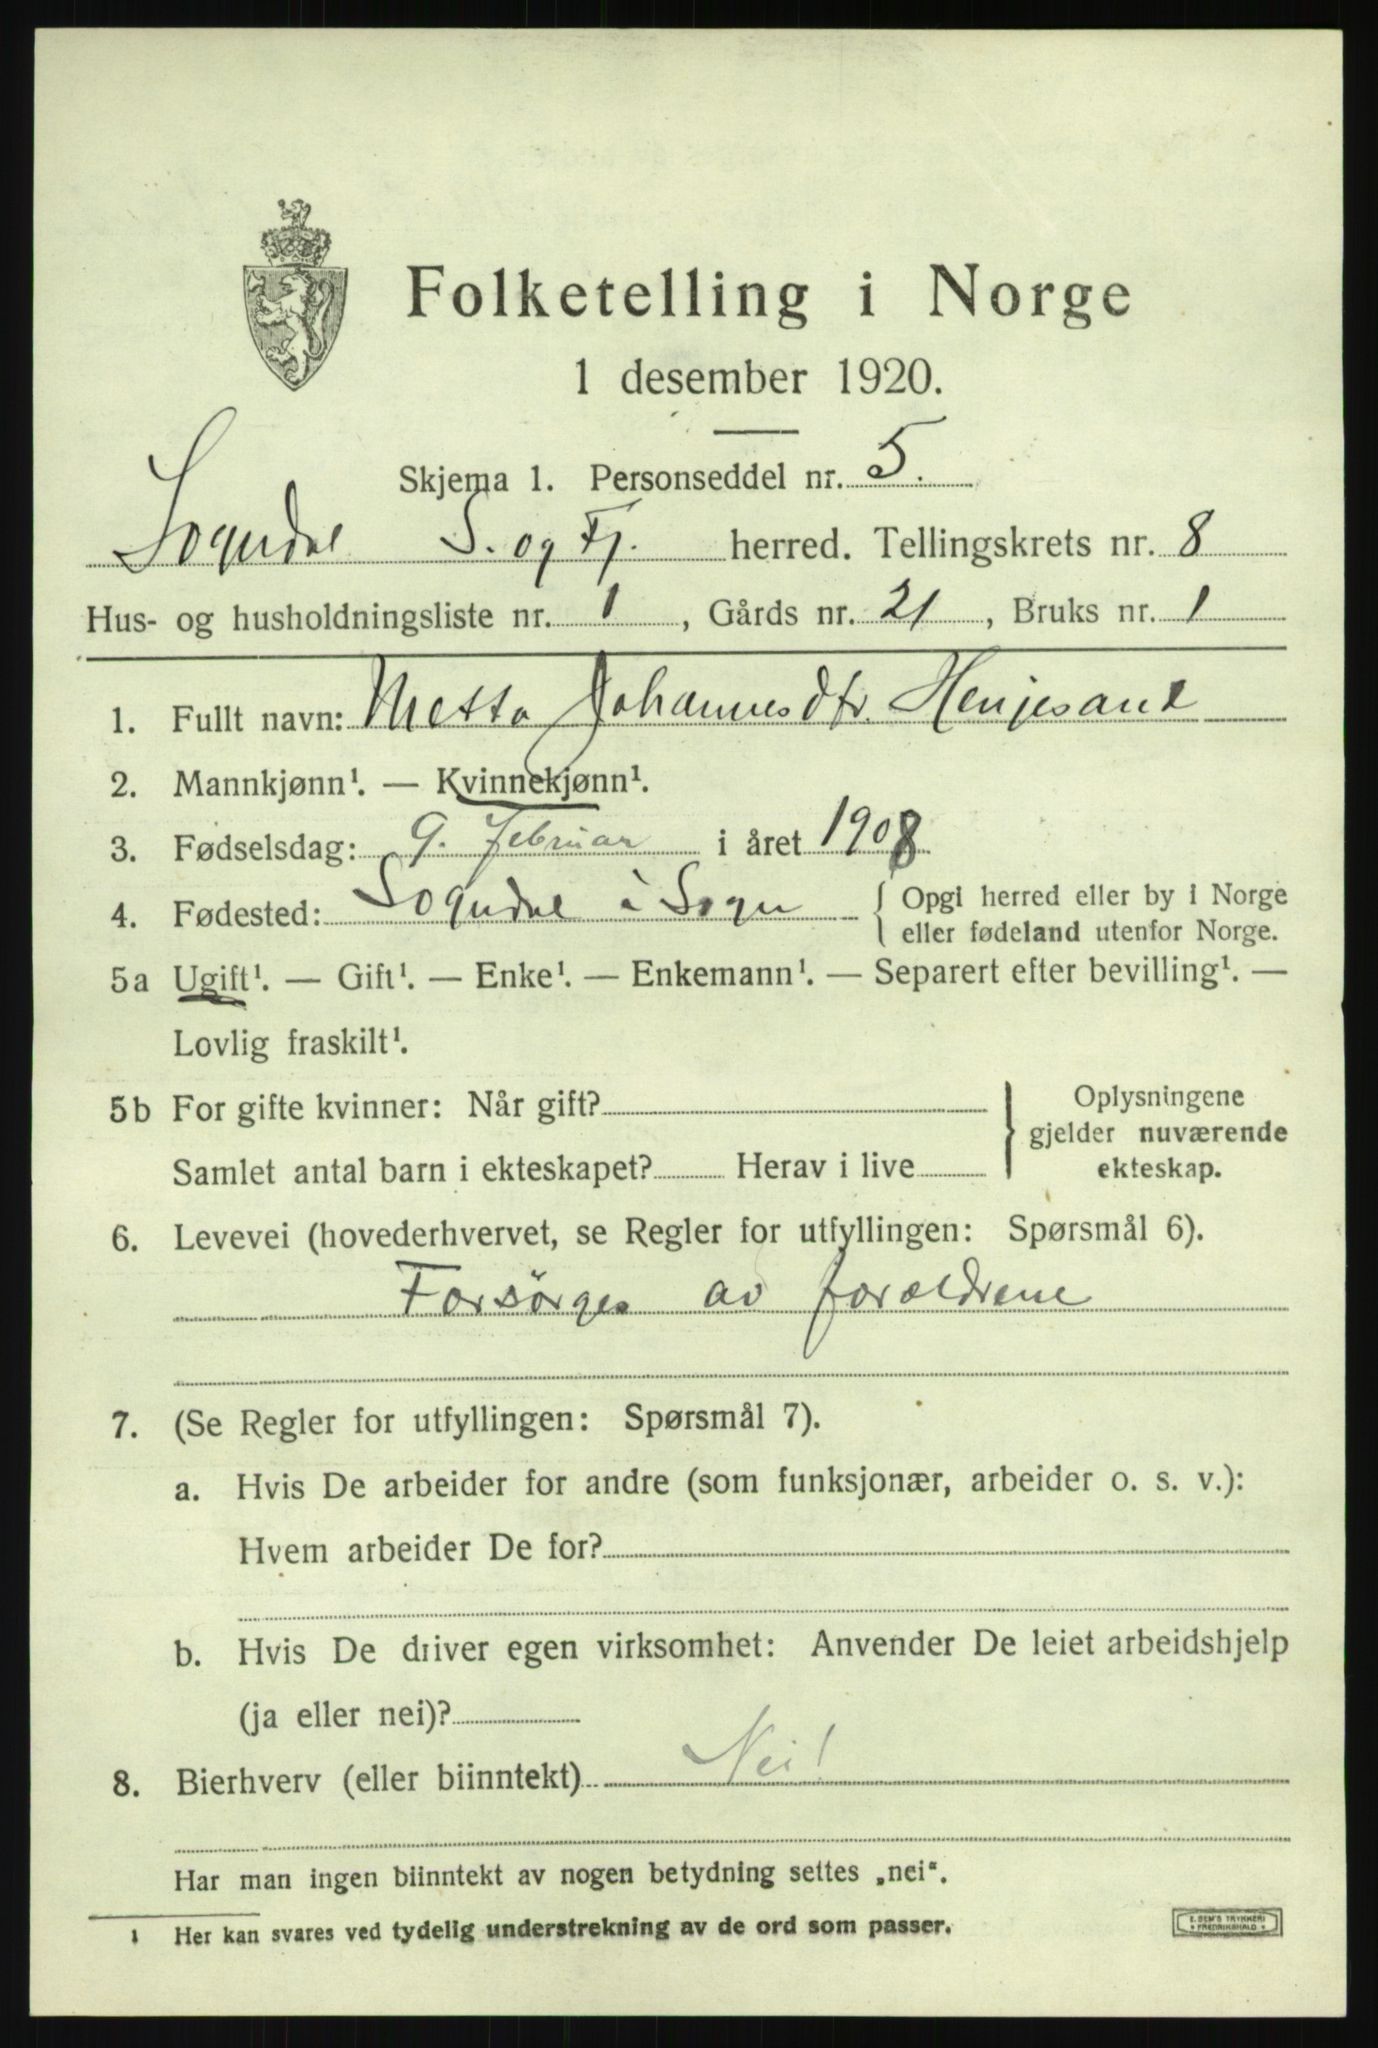 Folketelling i Norge
1 desember 1920.
Skjema 1. Personseddel nr. 5.
Sogndal S. og Fj. herred. Tellingskrets nr. 8
Hus- og husholdningsliste nr. 1, Gårds nr. 21, Bruks nr. 1
1. Fullt navn: Metta Johannesdtr. Henjesand
2. Mannkjønn¹. — Kvinnekjønn¹.
3. Fødselsdag: 9. Februar i året 1908
4. Fødested: Sogndal i Sogn { Opgi herred eller by i Norge
eller fødeland utenfor Norge.
5a Ugift¹. — Gift¹. — Enke¹. — Enkemann¹. — Separert efter bevilling¹. —
Lovlig fraskilt¹.
5b For gifte kvinner: Når gift?
Samlet antal barn i ekteskapet? Herav i live
} Oplysningene
gjelder nuværende
ekteskap.
6. Levevei (hovederhvervet, se Regler for utfyllingen: Spørsmål 6).
Forsörges av foreldrene
7. (Se Regler for utfyllingen: Spørsmål 7).
a. Hvis De arbeider for andre (som funksjonær, arbeider o. s. v.):
Hvem arbeider De for?
b. Hvis De driver egen virksomhet: Anvender De leiet arbeidshjelp
(ja eller nei)?
8. Bierhverv (eller biinntekt) Nei!
Har man ingen biinntekt av nogen betydning settes „nei“.
1 Her kan svares ved tydelig understrekning av de ord som passer.
E. SEM'S TRYKKERI
* FREDRIKSHALD *